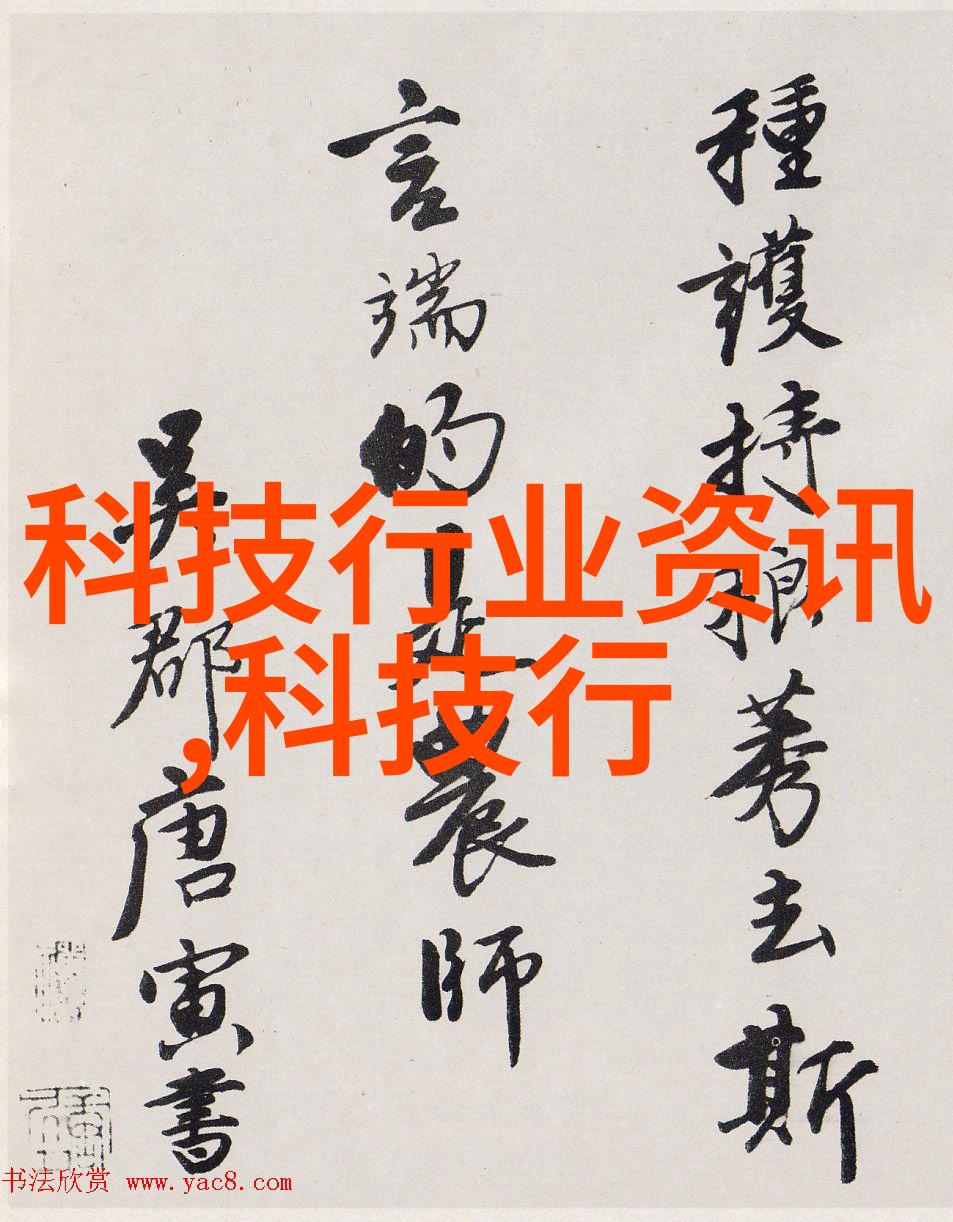 種護持稂莠去斯
言端的是農師
吳郡唐寅書
科技行业资讯
,科技行
书法欣赏 www.yac8.com